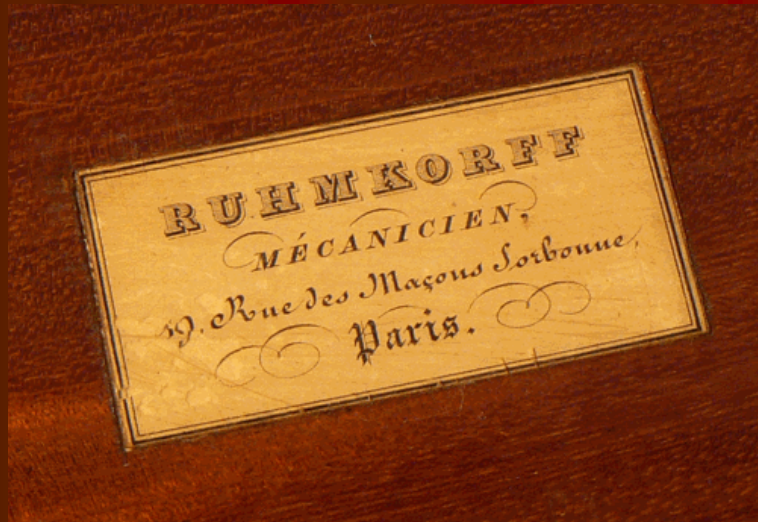 RUHMKORFF
MÉCANICIEN,
9. Rue des Maçons Sorbonne,
Paris.